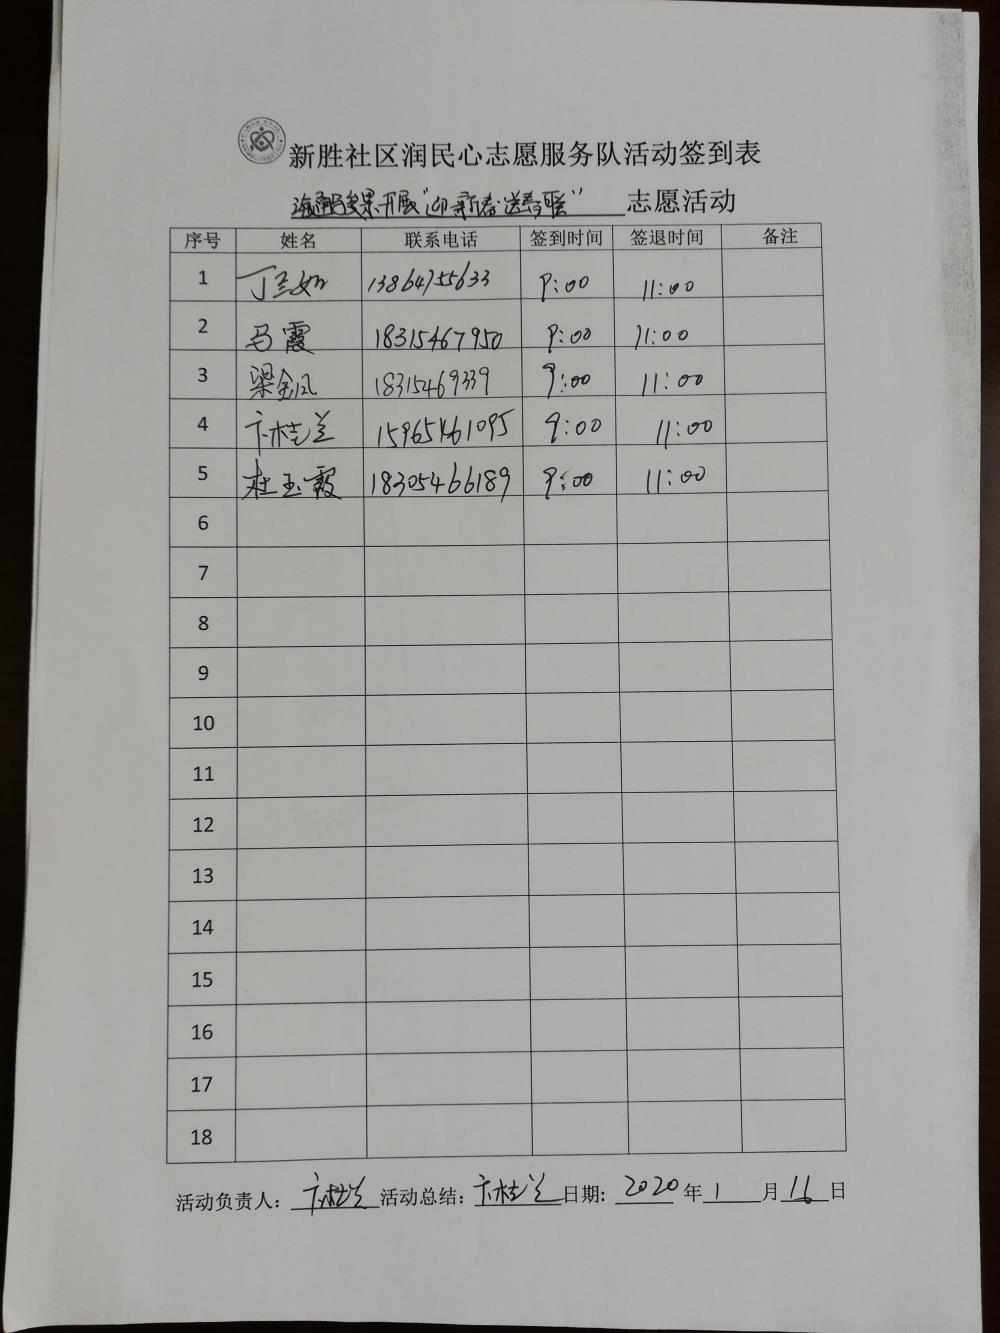 新胜社区润民心志愿服务队活动签到表
开展"迎新春·送春联" 志愿活动
序号 姓名 联系电话 签到时间 签退时间 备注
1 丁兰如 13864755633 9:00 11:00
2 马霞 18315467950 9:00 11:00
3 梁金凤 18315469339 9:00 11:00
4 卞桂兰 15965461095 9:00 11:00
5 杜玉霞 18305466189 9:00 11:00
6
7
8
9
10
11
12
13
14
15
16
17
18
活动负责人: 卞桂兰 活动总结: 卞桂兰 日期: 2020 年 1 月 16 日